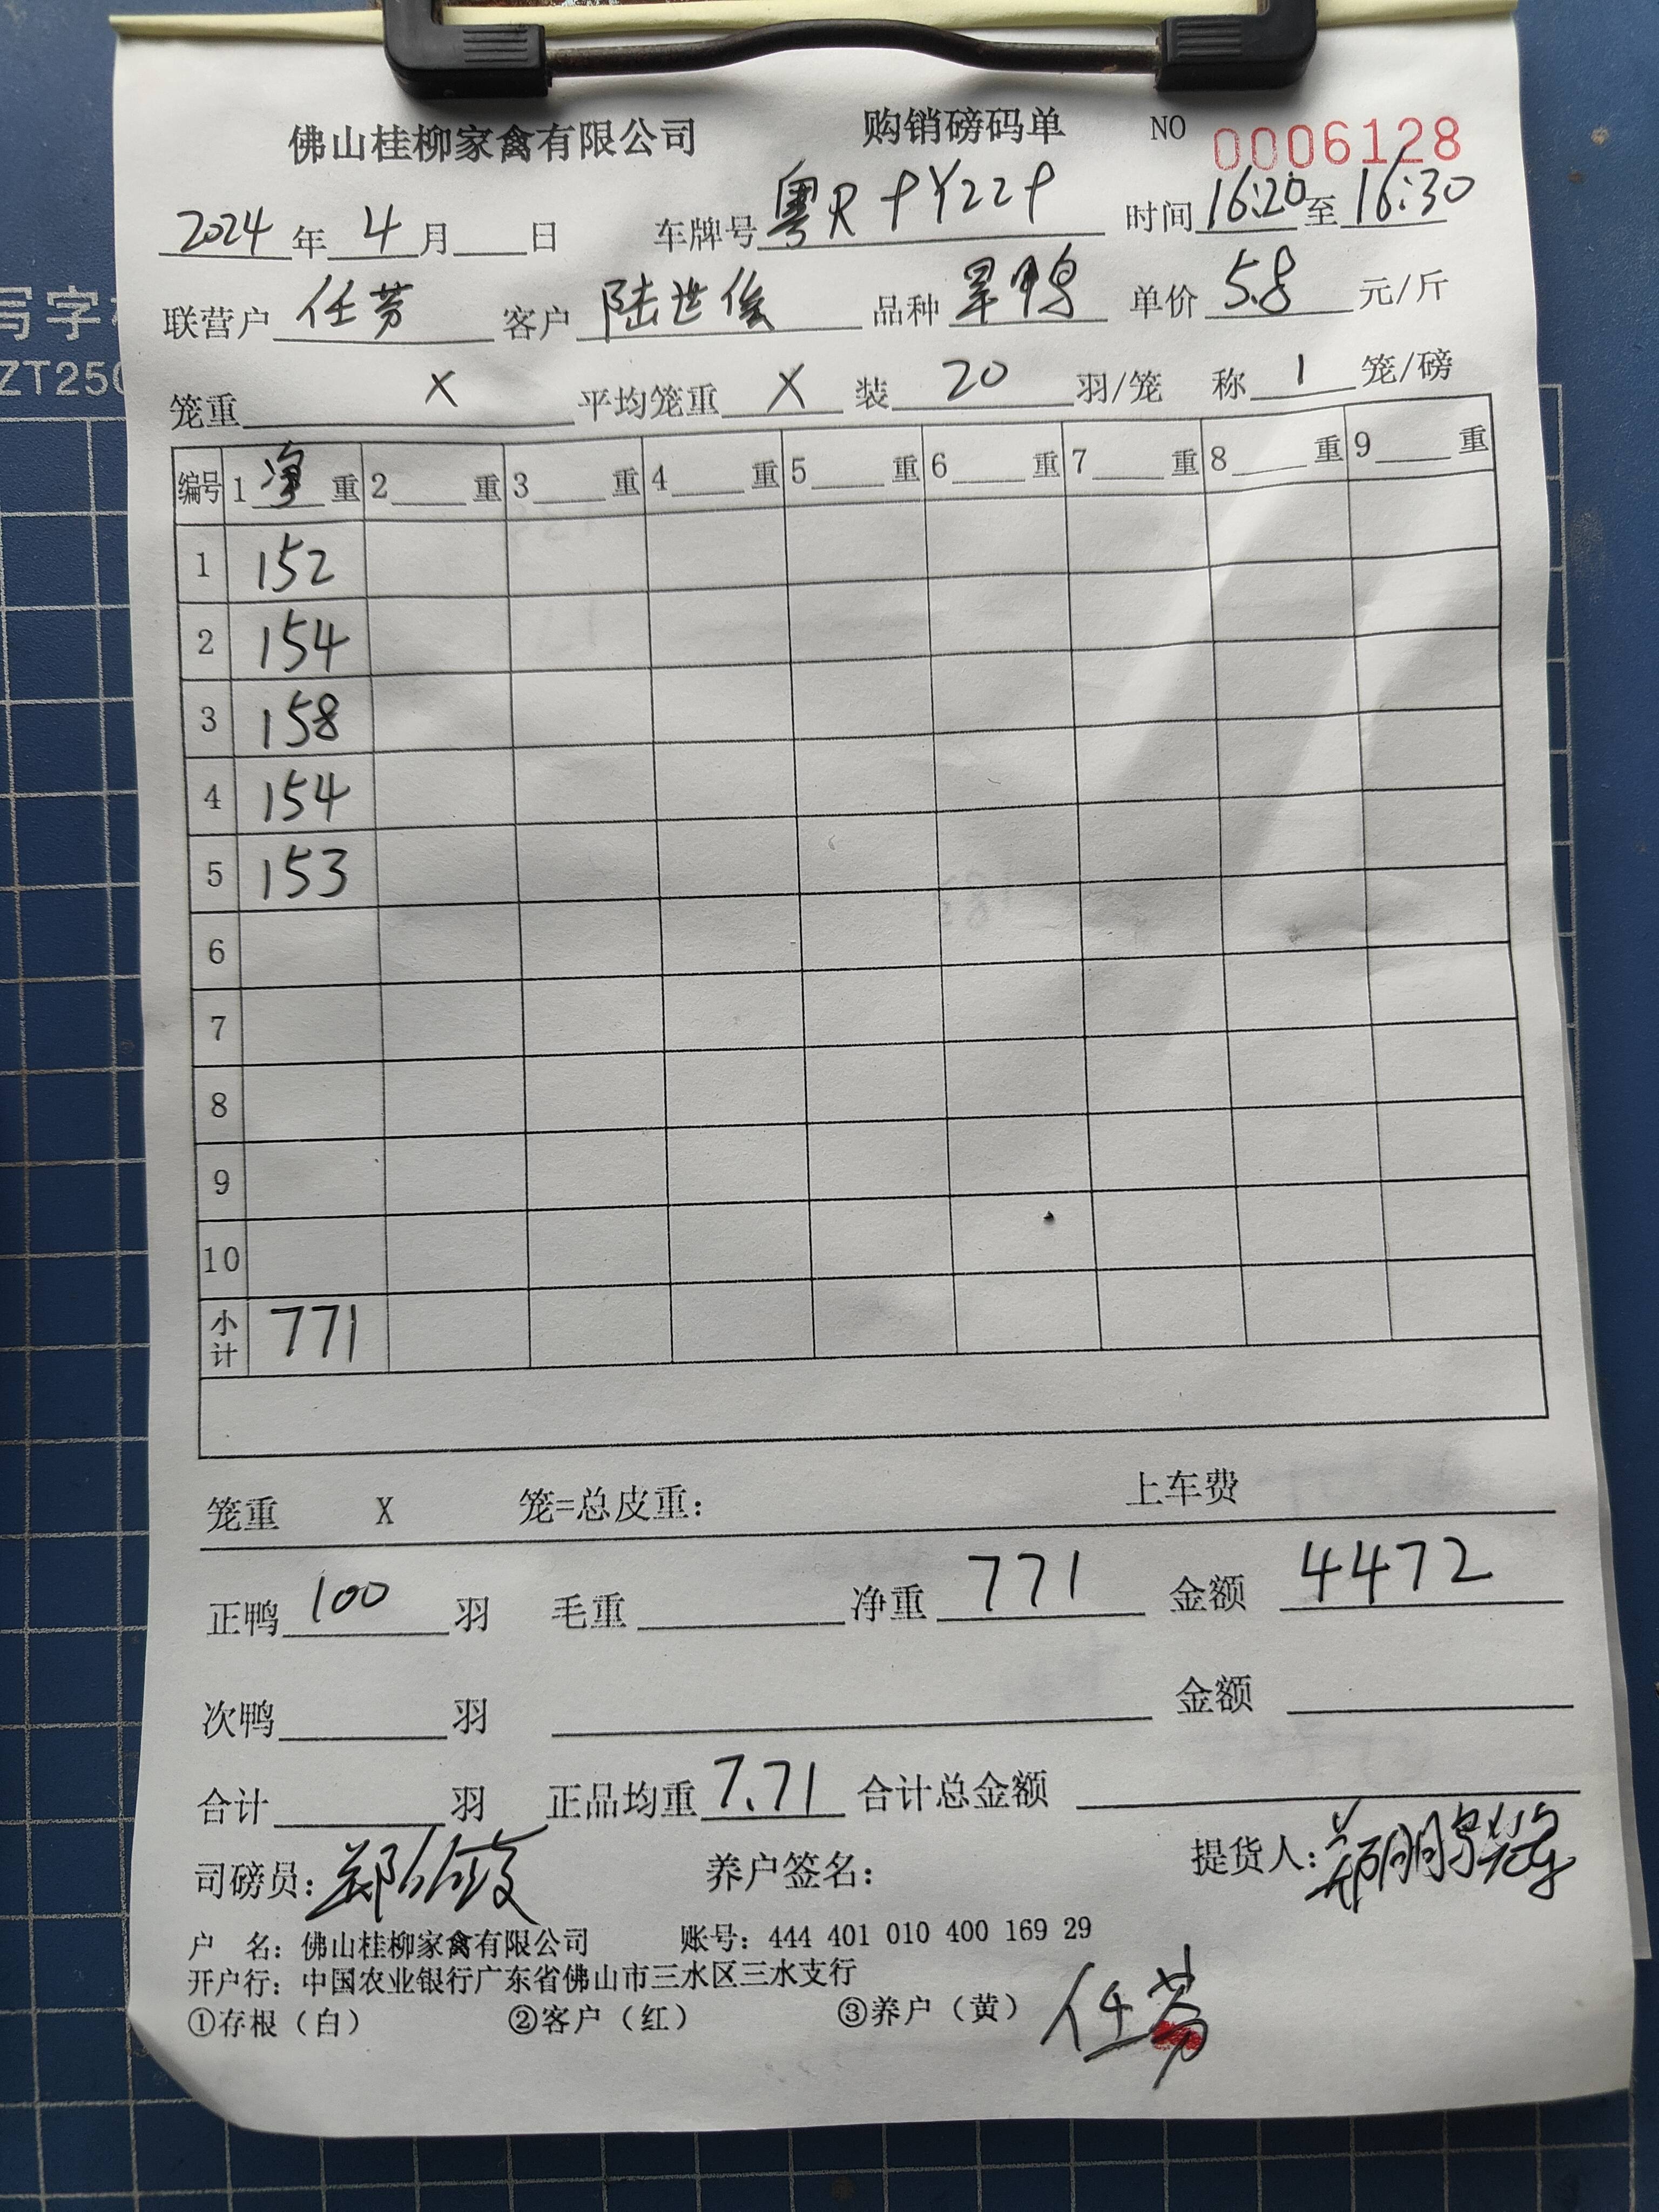 佛山桂柳家禽有限公司 购销磅码单 NO 0006128
2024年4月 日 车牌号粤R 时间16:20至16:30
联营户 任芬 客户 陆世俊 品种 旱鸭 单价 5.8 元/斤
笼重 X 平均笼重 X 装 20 羽/笼 称 1 笼/磅
写字
ZT250
编号 1 净 重 2 重 3 重 4 重 5 重 6 重 7 重 8 重 9 重
1 152
2 154
3 158
4 154
5 153
6
7
8
9
10
小计 771
笼重 X 笼=总皮重: 上车费
正鸭 100 羽 毛重 净重 771 金额 4472
次鸭 羽 金额
合计 羽 正品均重 7.71 合计总金额
司磅员: 郑 养户签名: 提货人:
户 名: 佛山桂柳家禽有限公司 账号: 444 401 010 400 169 29
开户行: 中国农业银行广东省佛山市三水区三水支行
①存根（白） ②客户（红） ③养户（黄） 任芬